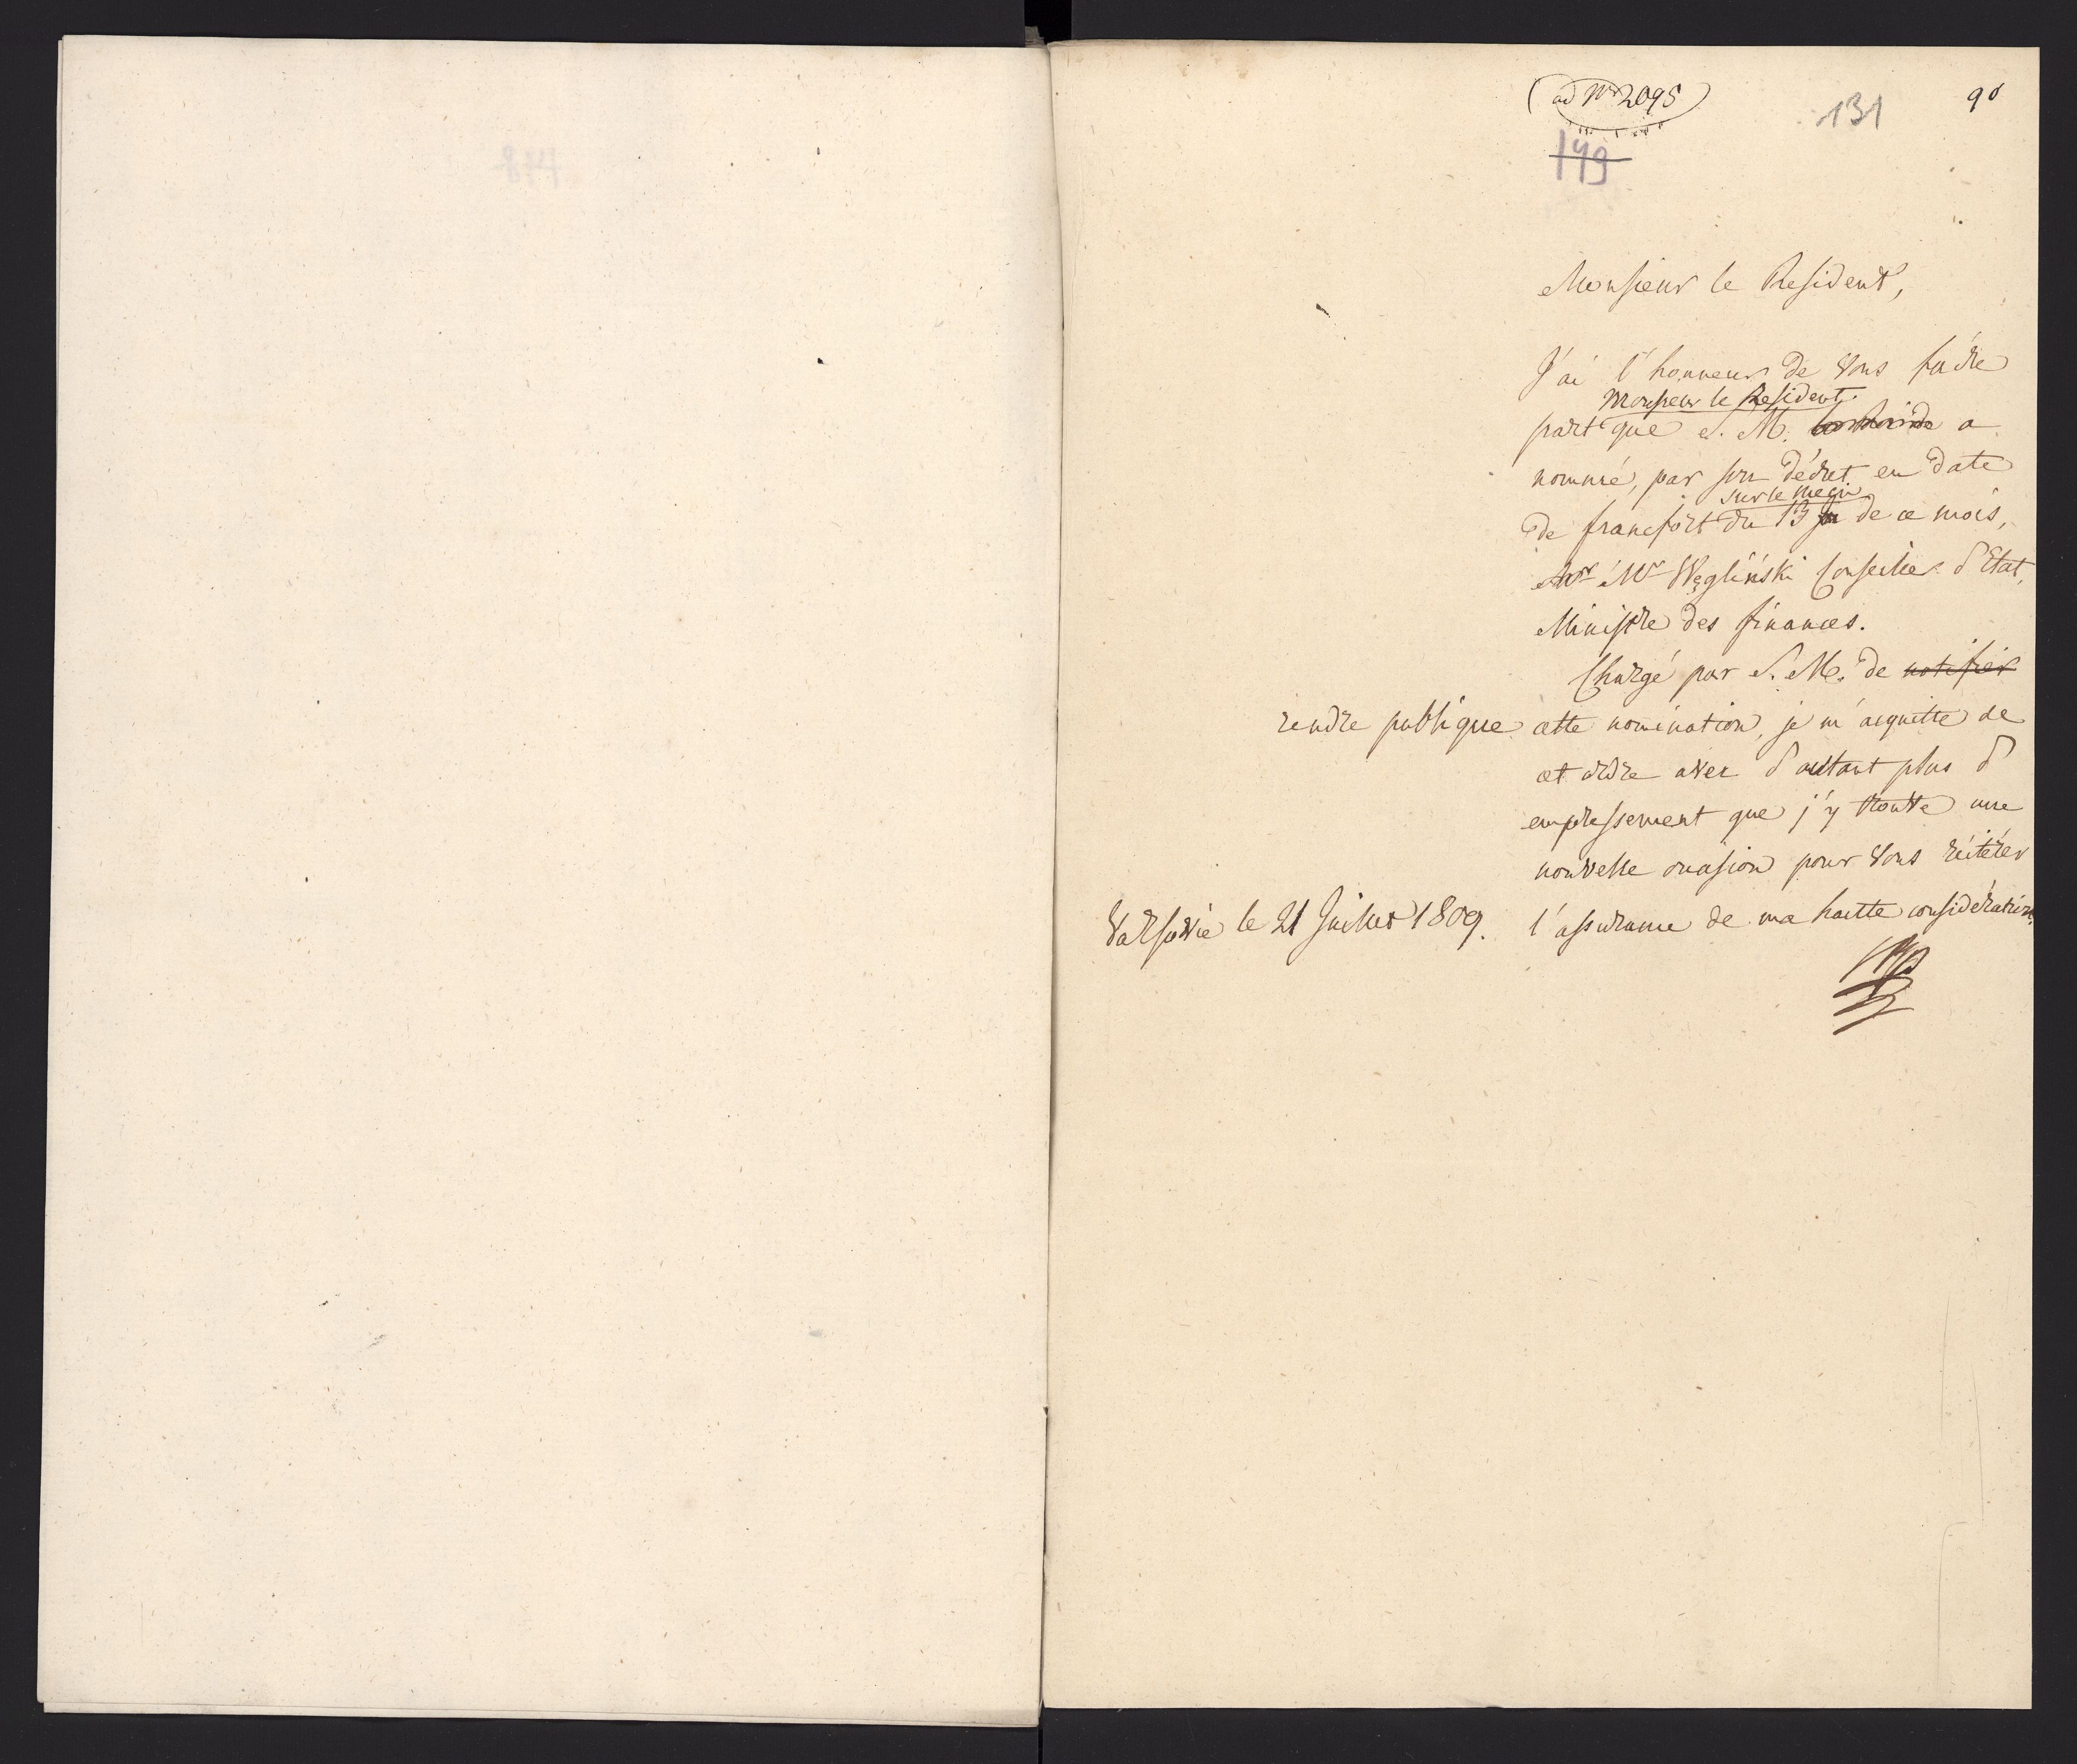 (ad Nr 2095)
131
90
149
Monsieur le Resident,
J'ai l'honneur de Vous faire
Monsieur le Resident
part que S. M. a
nommé, par son décret en date
sur le Mein
de francfort du 13 de ce mois,
Mr Węgliński Conseiller d'Etat,
Ministre des finances.
Chargé par S. M. de notifier
rendre publique cette nomination, je m'acquitte de
cet ordre avec d'autant plus d'
empressement que j'y trouve une
nouvelle occasion pour Vous réitérer
Varsovie le 21 Juillet 1809. l'assurance de ma haute considération.